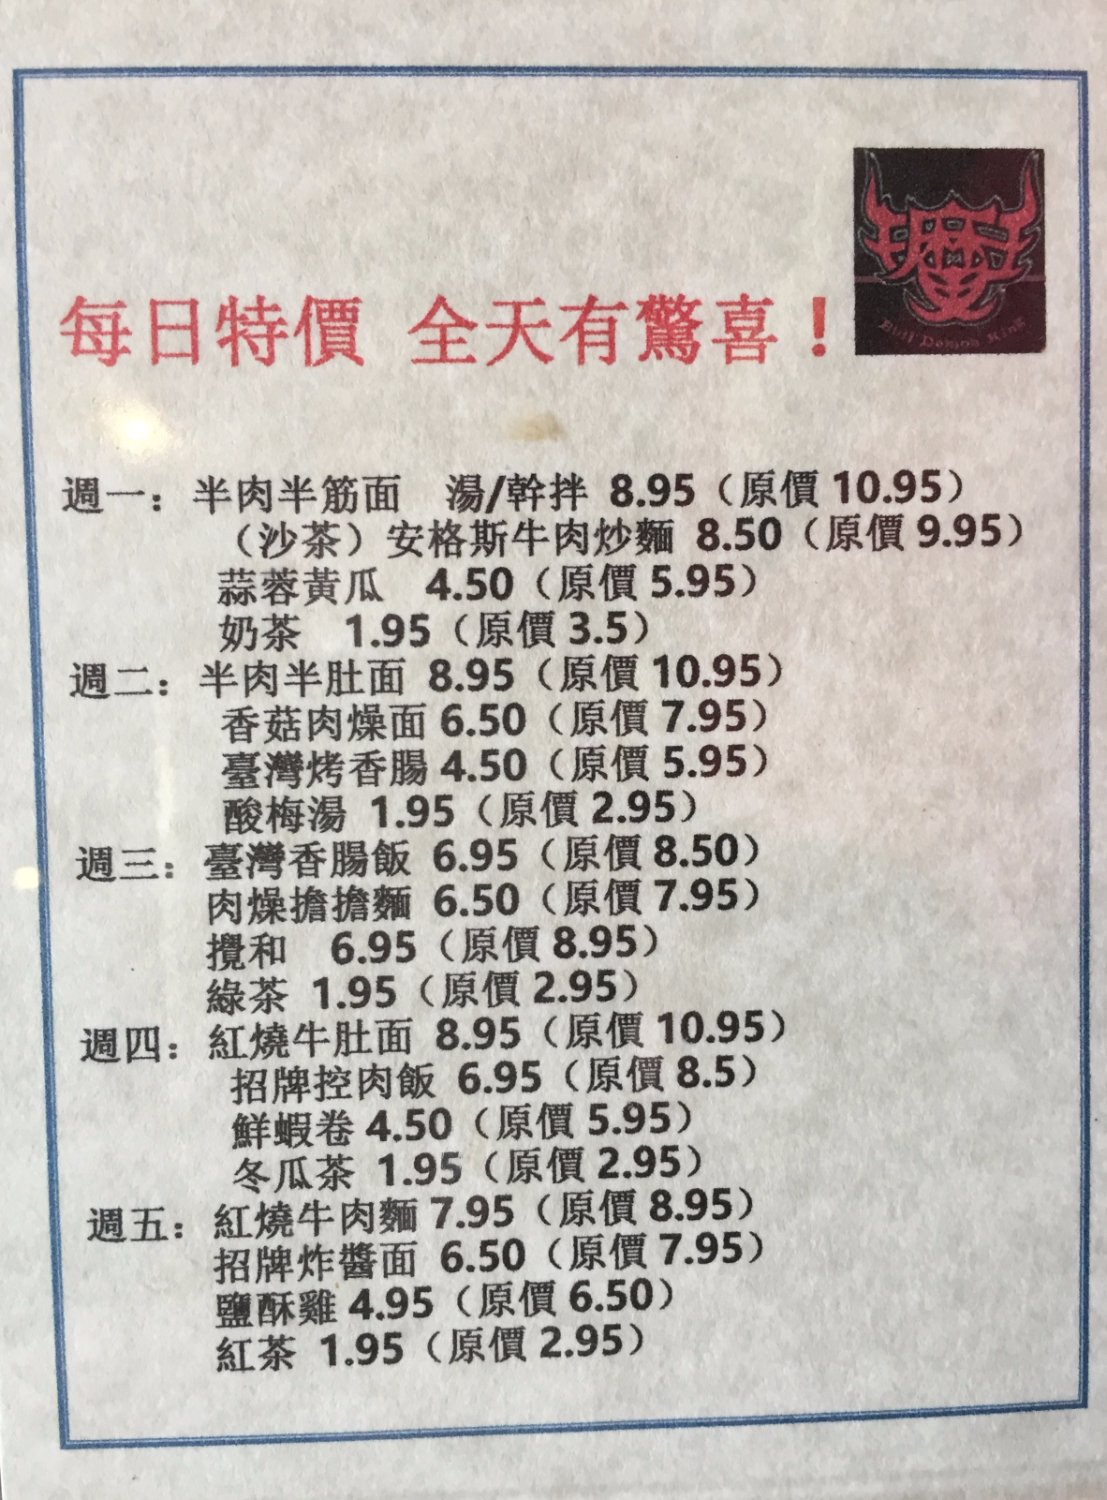 每日特價 全天有驚喜！
週一：半肉半筋面 湯/幹拌 8.95（原價 10.95）
（沙茶）安格斯牛肉炒麵 8.50（原價 9.95）
蒜蓉黃瓜 4.50（原價 5.95）
奶茶 1.95（原價 3.5）
週二：半肉半肚面 8.95（原價 10.95）
香菇肉燥面 6.50（原價 7.95）
臺灣烤香腸 4.50（原價 5.95）
酸梅湯 1.95（原價 2.95）
週三：臺灣香腸飯 6.95（原價 8.50）
肉燥擔擔麵 6.50（原價 7.95）
攪和 6.95（原價 8.95）
綠茶 1.95（原價 2.95）
週四：紅燒牛肚面 8.95（原價 10.95）
招牌控肉飯 6.95（原價 8.5）
鮮蝦卷 4.50（原價 5.95）
冬瓜茶 1.95（原價 2.95）
週五：紅燒牛肉麵 7.95（原價 8.95）
招牌炸醬面 6.50（原價 7.95）
鹽酥雞 4.95（原價 6.50）
紅茶 1.95（原價 2.95）